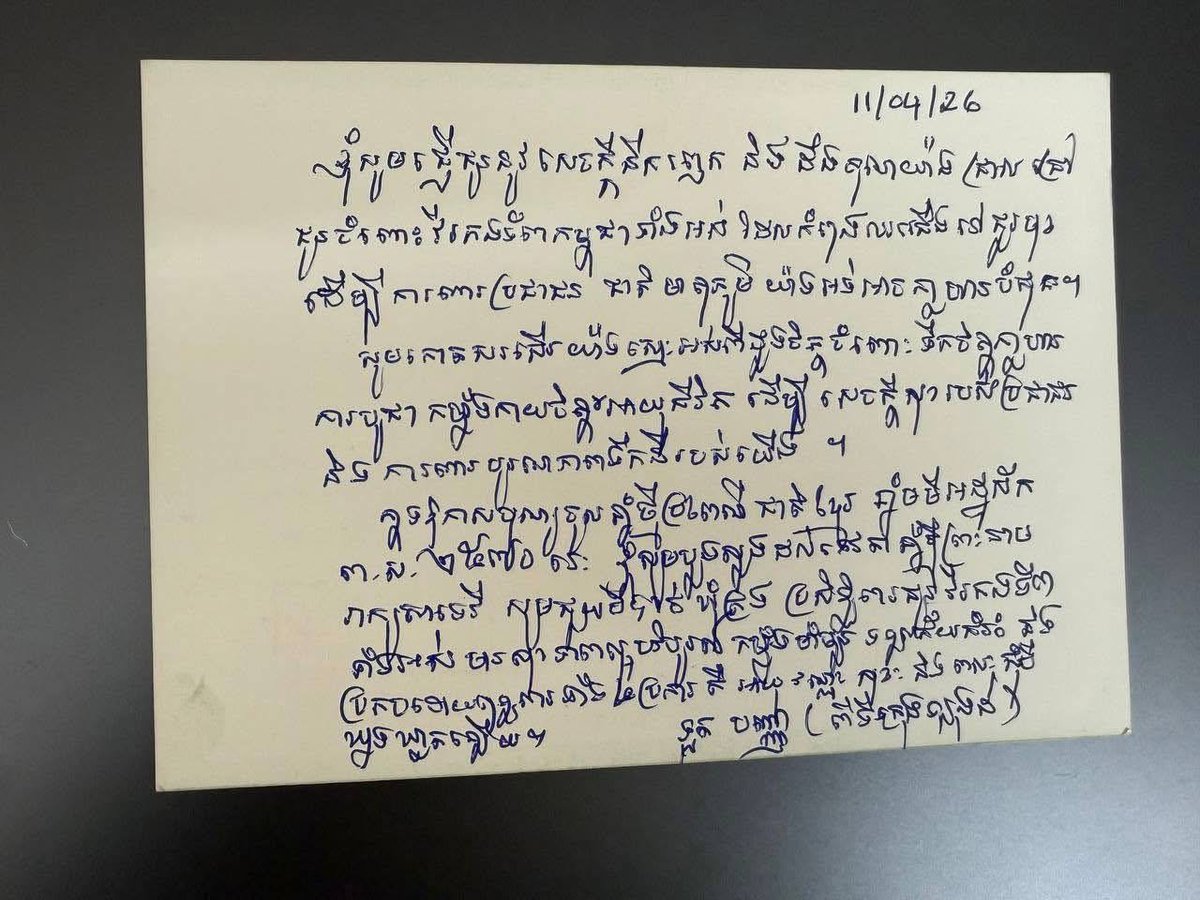 11/04/26
ខ្ញុំសូមផ្ញើជូននូវ សេចក្តីនឹករឭក និង ដឹងគុណយ៉ាង ជ្រាលជ្រៅ
ជូនចំពោះ វីរកងទ័ពកម្ពុជា ទាំងអស់ ដែលកំពុងឈរជើងនៅ ជួរមុខ
ដើម្បី ការពារប្រជាជន ជាតិ មាតុភូមិ យ៉ាងអង់អាចក្លាហានបំផុត។
សូមគោរពសរសើរ យ៉ាងស្មោះអស់ពីដួងចិត្តចំពោះ ទឹកចិត្តក្លាហាន
ការបូជា កម្លាំងកាយចិត្ត អាយុជីវិត ដើម្បី សេចក្តីសុខ របស់ប្រជាជន
និង ការពារ បូរណភាពទឹកដី របស់យើង ។
ក្នុងឱកាសបុណ្យចូលឆ្នាំថ្មី ប្រពៃណី ជាតិខ្មែរ ឆ្នាំមមី អដ្ឋស័ក
ព.ស. ២៥៧០ នេះ ខ្ញុំសូមបួងសួងដល់ទេវតា ឆ្នាំថ្មីព្រះនាម
រាក្យសាទេវី សូមជួយថែរក្សា ឃុំគ្រង ប្រសិទ្ធិពរជូន វីរកងទ័ព
ទាំងអស់ មានសុខភាពល្អបរិបូរណ៍ កម្លាំងមាំមួន ទទួលជ័យជំនះ និង
ប្រកបដោយពុទ្ធពរទាំង ៤ប្រការ គឺ អាយុ វណ្ណៈ សុខៈ និង ពលៈ កុំបី
ឃ្លៀងឃ្លាតឡើយ។ ទូច បញ្ញា (ពីទីក្រុងឡុងដ៍)